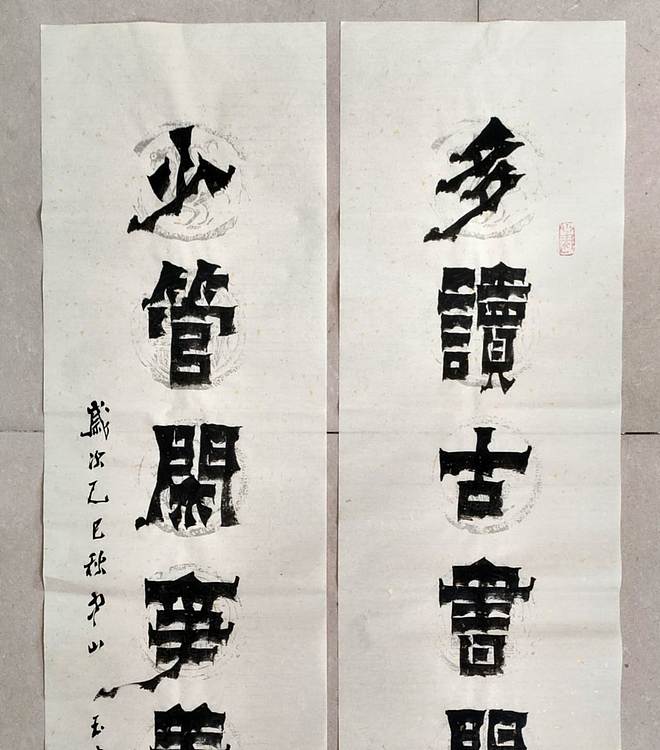 多讀古書
少管閑事
歲次乙巳秋
山
玉